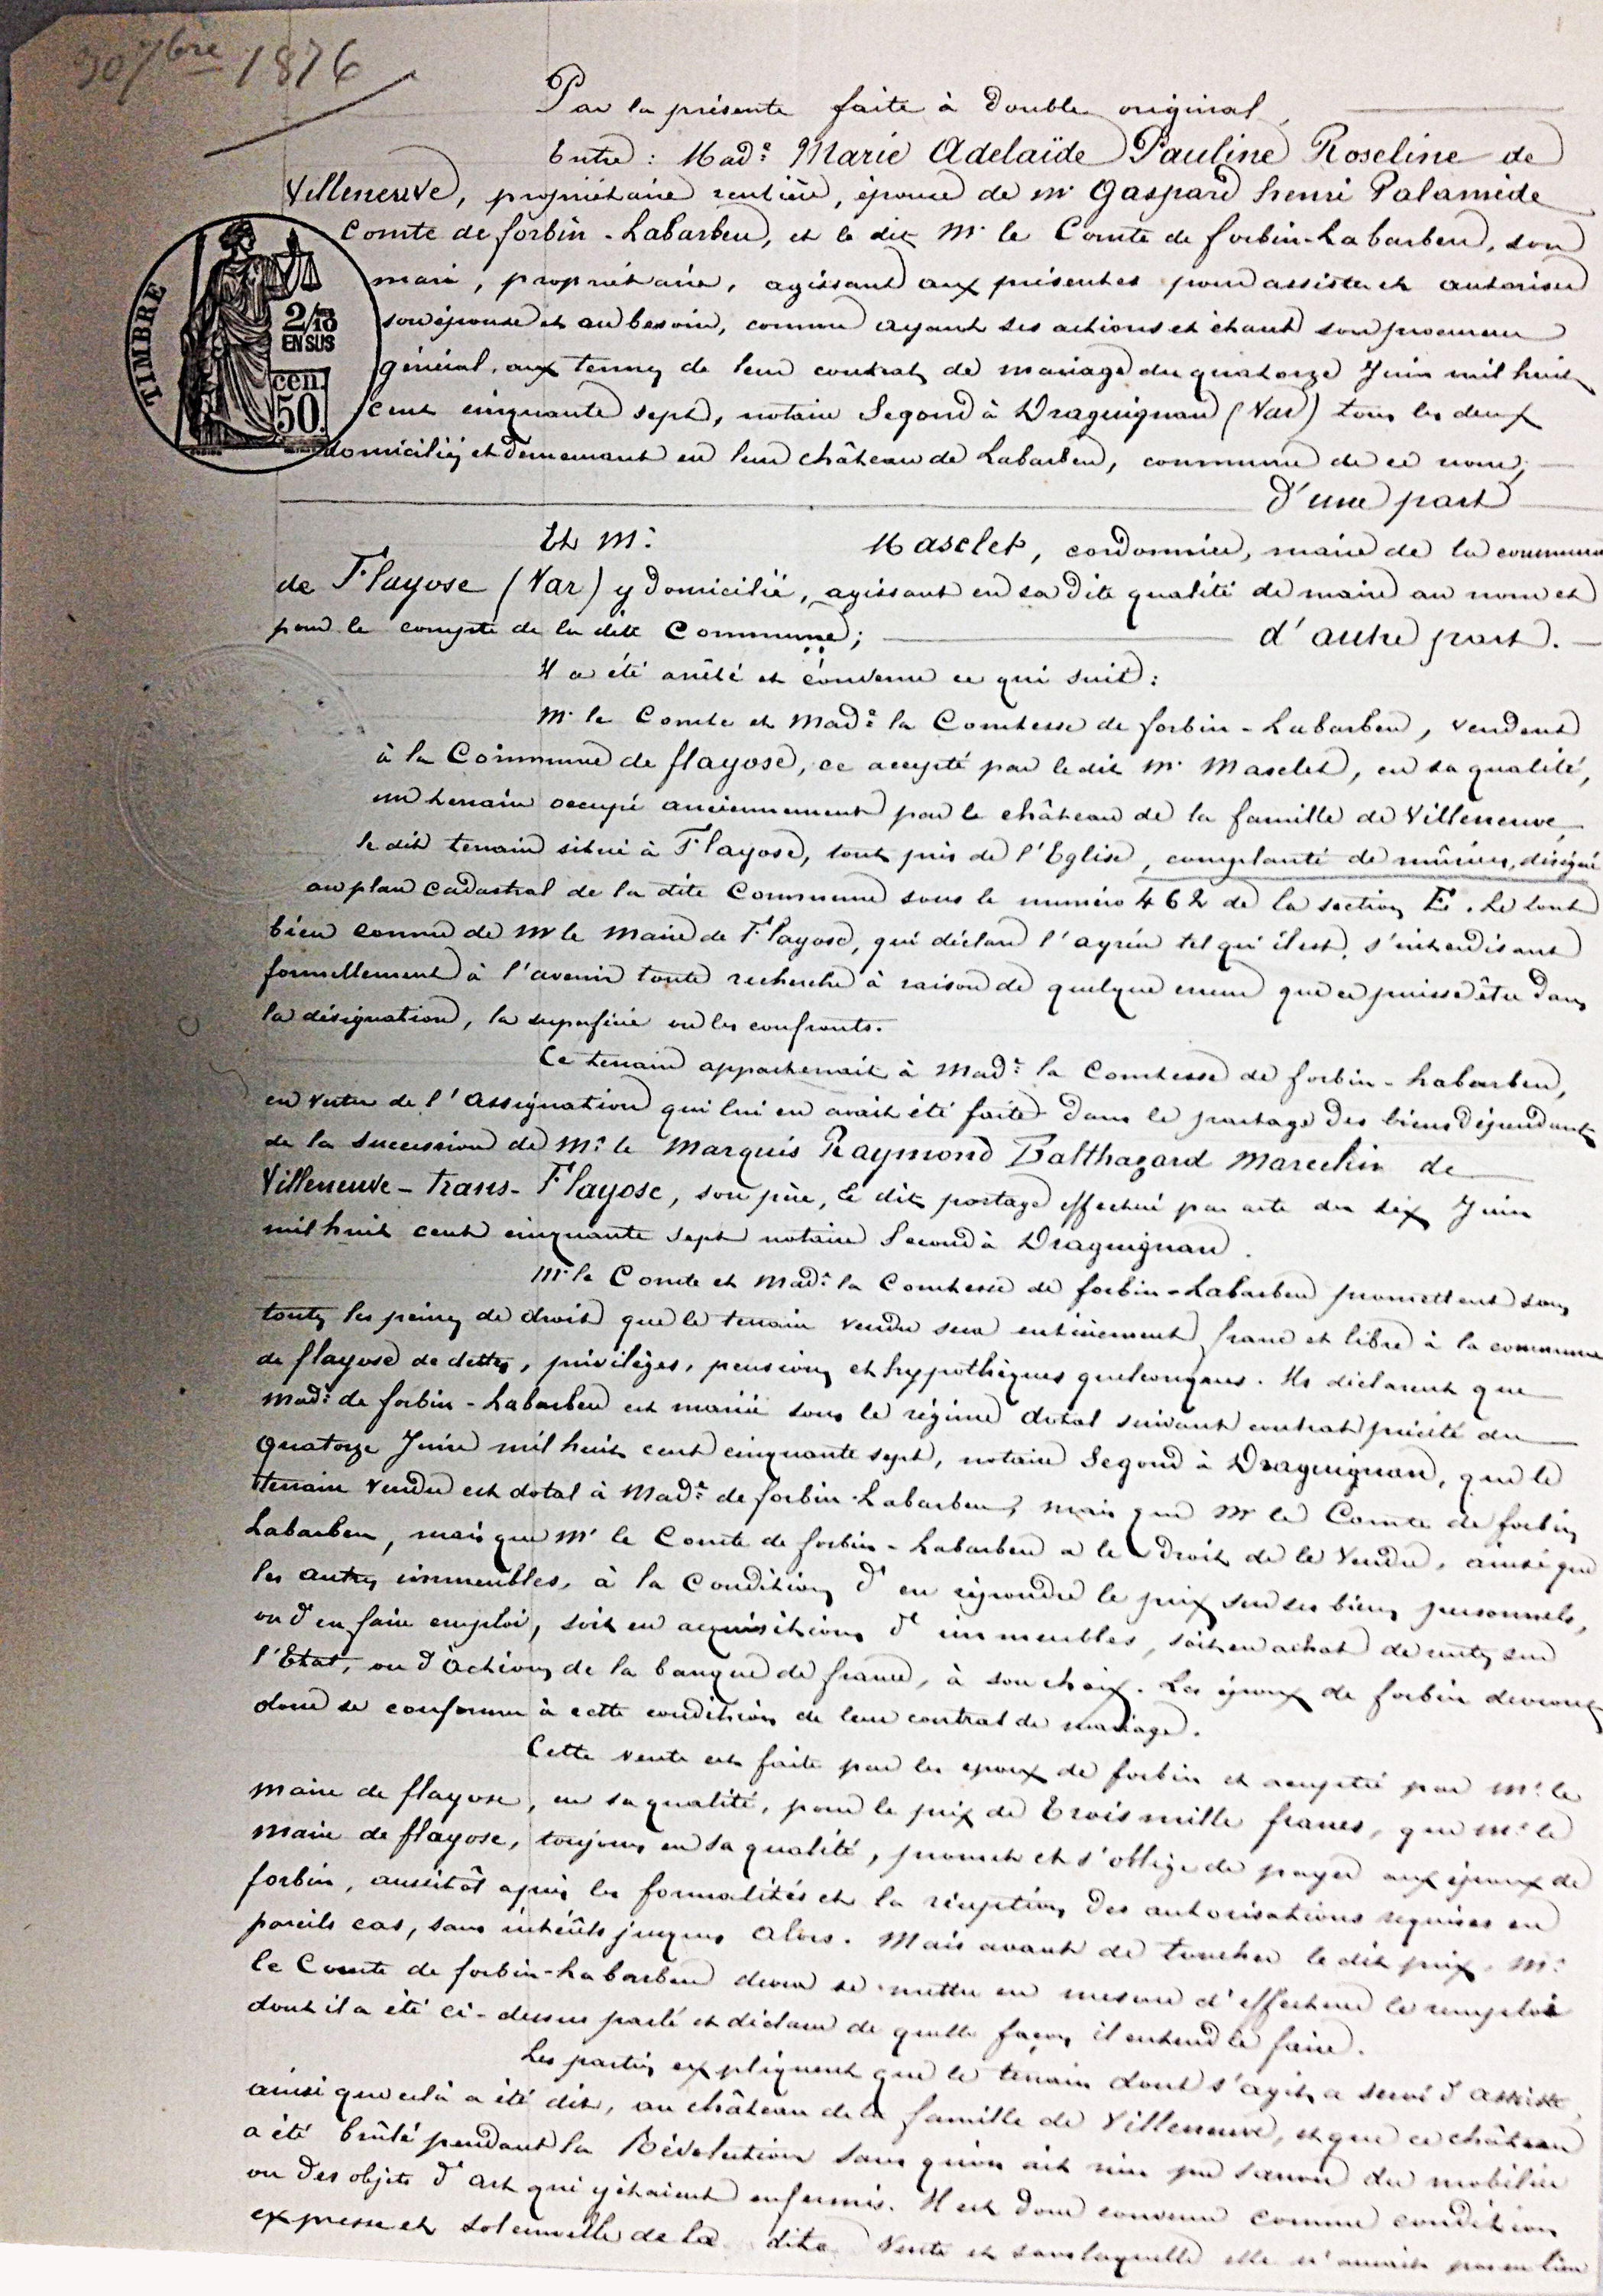 30 7bre 1876
Par la présente faite à double original
Entre : Made Marie Adelaïde Pauline Roseline de
Villeneuve, propriétaire rentière, épouse de Mr Gaspard henri Palamède
Comte de forbin - Labarben, et le dit Mr le Comte de forbin-Labarben, son
mari, propriétaire, agissant aux présentes pour assister et autoriser
son épouse et au besoin, comme ayant ses actions et étant son procureur
général, aux termes de leur contrat de mariage du quatorze Juin mil huit
cent cinquante sept, notaire Segond à Draguignan (Var) tous les deux
domiciliés et demeurant en leur château de Labarben, commune de ce nom;
d'une part
TIMBRE
2/10
EN SUS
cen.
50.
Et Mr Masclet, cordonnier, maire de la commune
de Flayosc (Var) y domicilié, agissant en sa dite qualité de maire au nom et
pour le compte de la dite Commune; d'autre part.
Il a été arrêté et convenu ce qui suit :
Mr le Comte et Made la Comtesse de forbin - Labarben, vendent
à la Commune de flayosc, ce accepté par le dit Mr Masclet, en sa qualité,
un terrain occupé anciennement par le château de la famille de Villeneuve,
le dit terrain situé à Flayosc, tout près de l'Eglise, complanté de mûriers, désigné
au plan cadastral de la dite Commune sous le numéro 462 de la section E. Le tout
bien connu de Mr le Maire de Flayosc, qui déclare l'agréer tel qu'il est, s'interdisant
formellement à l'avenir toute recherche à raison de quelque erreur que ce puisse être dans
la désignation, la superficie ou les confronts.
Ce terrain appartenait à Made la Comtesse de forbin - Labarben,
en vertu de l'assignation qui lui en avait été faite dans le partage des biens dépendants
de la succession de Mr le Marquis Raymond Balthazard Marcelin de
Villeneuve - Trans - Flayosc, son père, le dit partage effectué par acte du six Juin
mil huit cent cinquante sept notaire Segond à Draguignan.
Mr le Comte et Made la Comtesse de forbin - Labarben promettent sous
toutes les peines de droit que le terrain vendu sera entièrement franc et libre à la commune
de flayosc de dettes, privilèges, pensions et hypothèques quelconques. Ils déclarent que
Made de forbin - Labarben est mariée sous le régime dotal suivant contrat précité du
quatorze Juin mil huit cent cinquante sept, notaire Segond à Draguignan, que le
terrain vendu est dotal à Made de forbin Labarben, mais que Mr le Comte de forbin
Labarben, mais que Mr le Comte de forbin - Labarben a le droit de le vendre, ainsi que
les autres immeubles, à la condition d'en répondre le prix sur ses biens personnels,
ou d'en faire emploi, soit en acquisitions d'immeubles, soit en achat de rentes sur
l'Etat, ou d'actions de la banque de france, à son choix. Les époux de forbin devront
donc se conformer à cette condition de leur contrat de mariage.
Cette vente est faite par les epoux de forbin et acceptée par Mr le
Maire de flayosc, en sa qualité, pour le prix de Trois mille francs, que Mr le
Maire de flayosc, toujours en sa qualité, promet et s'oblige de payer aux époux de
forbin, aussitôt après les formalités et la réception des autorisations requises en
pareils cas, sans intérêts jusques alors. Mais avant de toucher le dit prix, Mr
le Comte de forbin-Labarben devra se mettre en mesure d'effectuer le remploi
dont il a été ci-dessus parlé et déclarer de quelle façon il entend le faire.
Les parties expliquent que le terrain dont s'agit, a servi d'assiette,
ainsi que celà a été dit, au château de la famille de Villeneuve, et que ce château
a été brûlé pendant la Révolution sans qu'on ait rien pu sauver du mobilier
ou des objets d'art qui y étaient enfermés. Il est donc convenu comme condition
expresse et solennelle de la dite vente et sans laquelle elle n'aurait pas eu lieu